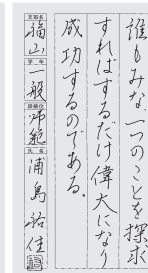 誰もみな、一つのことを探求
すればするだけ偉大になり
成功するのである。
支部名
福山
学年
一般
段級位
師範
氏名
浦島裕佳